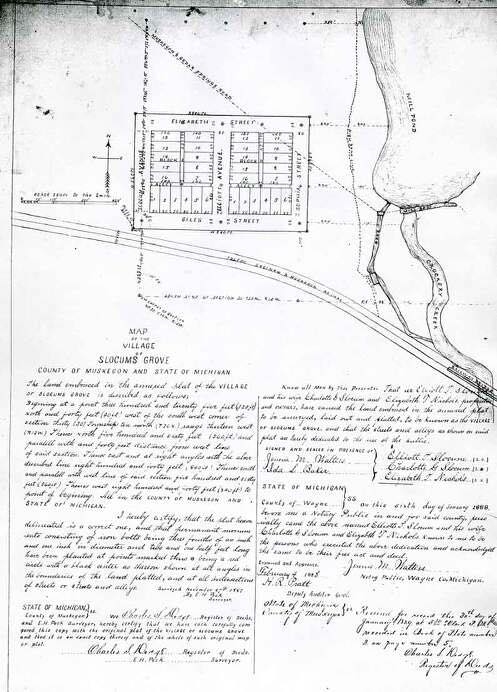 MUSKEGON & CEDAR SPRINGS ROAD
MILL POND
ELIZABETH STREET
BLOCK
BLOCK
ELLIOTT AVENUE
SOPHIA STREET
1 2 3 4 5 6
1 2 3 4 5 6
GILES STREET
N
TOLEDO, SAGINAW & MUSKEGON RAILWAY
CROCKERY CREEK
MAP
OF THE
VILLAGE
OF
SLOCUMS GROVE
COUNTY OF MUSKEGON AND STATE OF MICHIGAN
The land embraced in the annexed plat of the VILLAGE
OF SLOCUMS GROVE is described as follows:
Begining at a point three hundred and twenty five feet
north and forty feet west of the south west corner of
section thirty (30) Township ten north range thirteen west
Thence north five hundred and sixty feet and
parallell with and forty feet distant from west line
of said section. Thence east and at right angles with the above
described line eight hundred and forty feet, Thence south
and parallell with west line of said section five hundred and sixty
feet Thence west eight hundred and forty feet to
point of begining. All in the COUNTY OF MUSKEGON AND
STATE OF MICHIGAN.
I hereby certify, that the plat hereon
delineated is a correct one, and that permanent monuments
consisting of iron bolts being three fourths of an inch
and one inch in diameter and two and one half feet long
have been planted at points marked thus
at all angles in
the boundaries of the land platted, and at all intersections
of streets or streets and alleys.
Surveyed November 1887
By E.H. Peck
Surveyor.
STATE OF MICHIGAN
County of Muskegon
We Charles S. Register of Deeds,
and E.H. Peck Surveyor, hereby certify that we have carefully compared
this copy with the original plat of the village of SLOCUMS GROVE
and that it is an exact copy thereof and of the whole of such original map
or plat.
Charles S. Register of Deeds.
E.H. Peck Surveyor.
Know all Men by This Presents: That we Elliott T. Slocum
and his wife Charlotte G Slocum and Elizabeth T. Nichols, proprietors
and owners, have caused the land embraced in the annexed plat
to be surveyed, laid out and platted, to be known as the VILLAGE
OF SLOCUMS GROVE and that the streets and alleys as shown on said
plat as hereby dedicated to the use of the public.
SIGNED AND SEALED IN PRESENCE OF
Jennie M. Walters
Ada L. Baker.
Elliott T. Slocum
Charlotte G. Slocum
Elizabeth T. Nichols
STATE OF MICHIGAN
SS
County of Wayne
On this sixth day of January 1888,
before me a Notary Public in and for said county, personally
came the above named Elliott T. Slocum and his wife
Charlotte G Slocum and Elizabeth T Nichols known to me to be
the persons who executed the above dedication and acknowledged
the same to be their free act and deed.
Jennie M. Walters
Notary Public, Wayne Co. Michigan.
Examined and Approved
February 1888
H. R. Pratt
Deputy Auditor Genl.
State of Michigan
County of Muskegon
Received for record the 30th day of
January
recorded in Book of Plats number
2 on page 5.
Charles S.
Register of Deeds